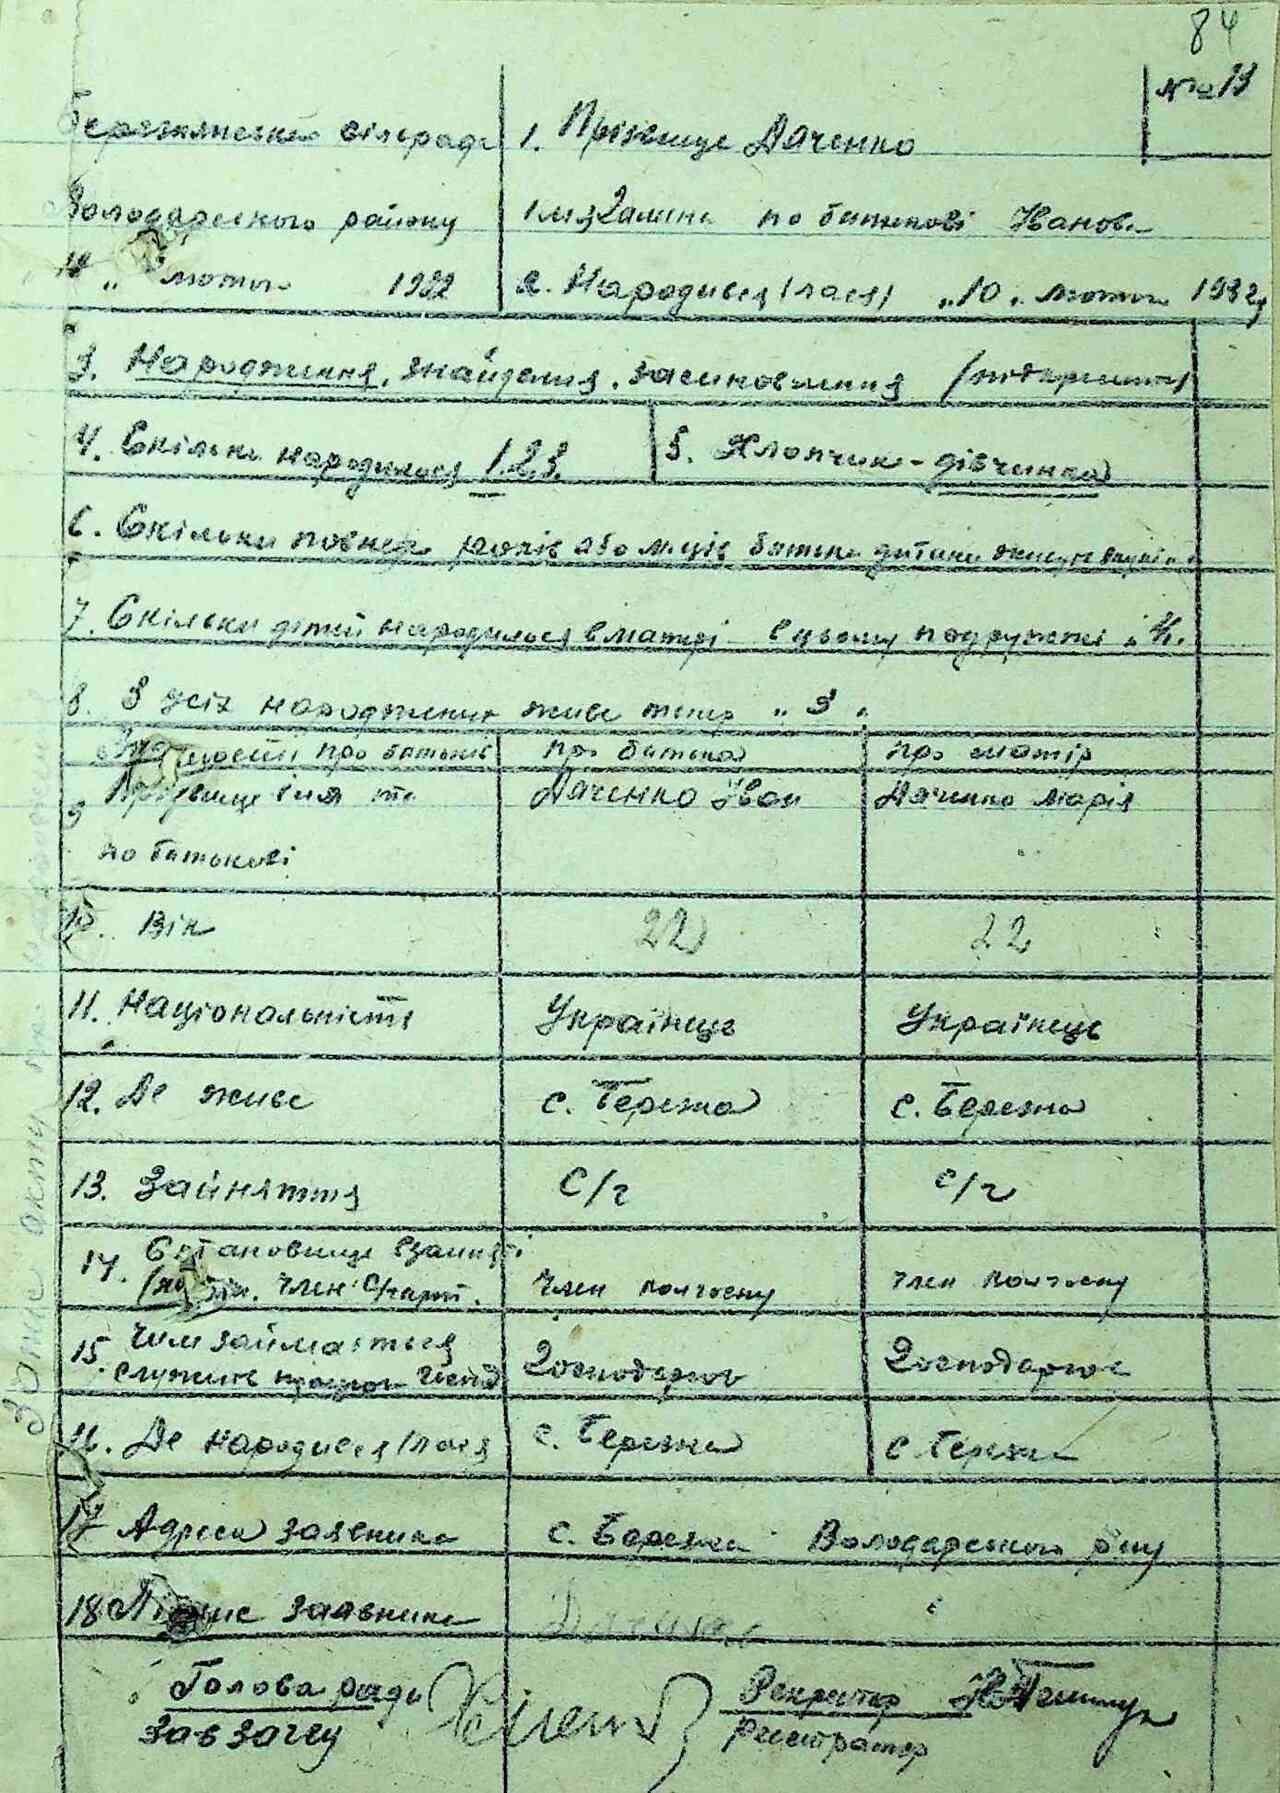 84
№ 19
Бережанська сільрада
1. Прізвище Дяченко
Володарського району
імя Галина по батькові Іванов.
лютого 1932
2. Народився /лася/ „10„ лютого 1932
3. Народження, знайдення, засиновлення /підкреслить/
4. Скільки народилося 1.2.3.
5. Хлопчик - дівчинка
6. Скільки повних років або місців батьки дитини живуть вкупі
7. Скільки дітей народилося в матері в цьому подружжі „4„
8. З усіх народжених живе тепер „3„
про батьків
про батька
про матір
9 Прізвище імя та
по батькові
Дяченко Іван
Дяченко Марія
10. Вік
22
22
11. Національність
Українець
Українець
12. Де живе
с. Бережа
с. Бережа
13. Зайняття
С/г
с/г
14. Становище в занятті
член с/госп.
член колгоспу
член колгоспу
15. Чим займається
служить працює
Господарює
Господарює
16. Де народився /лася
с. Бережа
с. Бережа
17 Адреса заявника
с. Бережа Володарського р-ну
18 Підпис заявника
Дяченко
Голова ради
Зав загсу
Секретар
Реєстратор
Запис акту